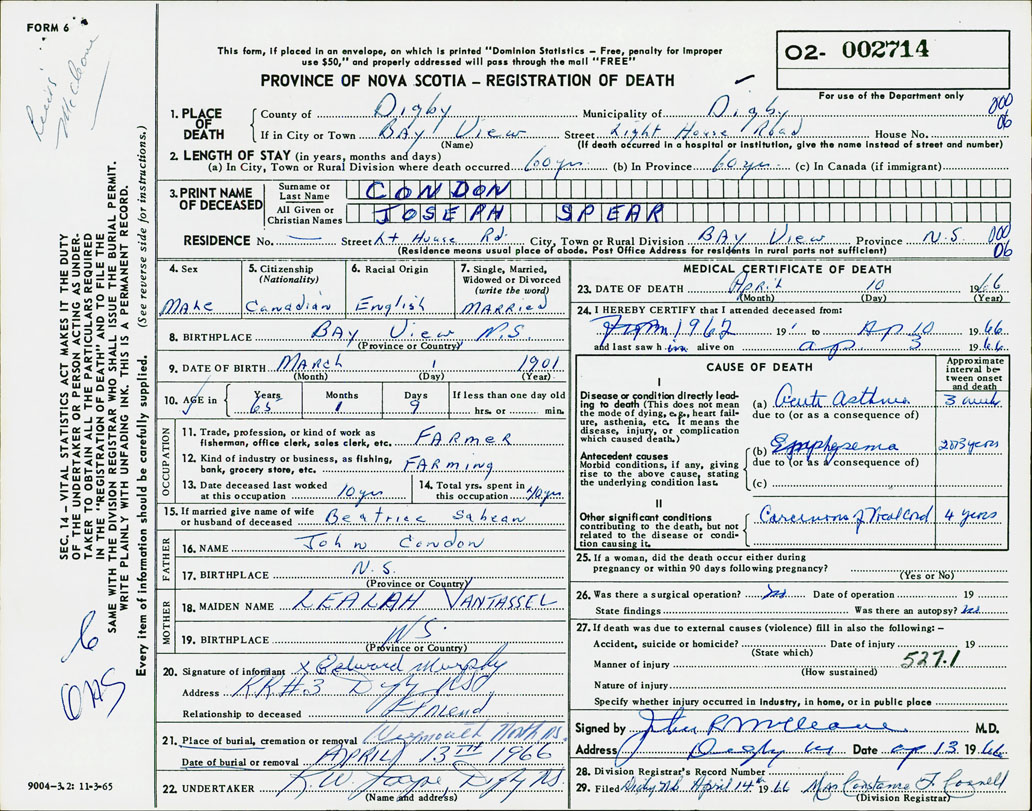 FORM 6
This form, if placed in an envelope, on which is printed "Dominion Statistics – Free, penalty for Improper
use $50," and properly addressed will pass through the mail "FREE"
O2- 002714
PROVINCE OF NOVA SCOTIA – REGISTRATION OF DEATH
For use of the Department only
1. PLACE OF DEATH
County of Digby Municipality of Digby 000
If in City or Town Bay View Street Light House Road House No. 06
(Name) (If death occurred in a hospital or institution, give the name instead of street and number)
2. LENGTH OF STAY (in years, months and days)
(a) In City, Town or Rural Division where death occurred 60 yrs (b) In Province 60 yrs (c) In Canada (if immigrant)
3. PRINT NAME OF DECEASED
Surname or Last Name CONDON
All Given or Christian Names JOSEPH SPEAR
RESIDENCE No. — Street Lt House Rd. City, Town or Rural Division BAY View Province N.S. 000
(Residence means usual place of abode. Post Office Address for residents in rural parts not sufficient) 06
4. Sex
Male
5. Citizenship
(Nationality)
Canadian
6. Racial Origin
English
7. Single, Married,
Widowed or Divorced
(write the word)
MARRied
8. BIRTHPLACE BAY View N.S.
(Province or Country)
9. DATE OF BIRTH March 1 1901
(Month) (Day) (Year)
10. AGE in Years 65 Months 1 Days 9 If less than one day old
hrs. or min.
OCCUPATION
11. Trade, profession, or kind of work as
fisherman, office clerk, sales clerk, etc. FARMER
12. Kind of industry or business, as fishing,
bank, grocery store, etc. FARMing
13. Date deceased last worked
at this occupation 10 yrs
14. Total yrs. spent in
this occupation 40 yrs
15. If married give name of wife
or husband of deceased Beatrice
FATHER
16. NAME John Condon
17. BIRTHPLACE N.S.
(Province or Country)
MOTHER
18. MAIDEN NAME LEALAH VANTASSEL
19. BIRTHPLACE N.S.
(Province or Country)
20. Signature of informant x Edward Murphy
Address RR#3 Digby NS
Relationship to deceased Friend
21. Place of burial, cremation or removal Weymouth North NS.
Date of burial or removal APRIL 13TH 1966
22. UNDERTAKER R.W. Digby NS.
(Name and address)
MEDICAL CERTIFICATE OF DEATH
23. DATE OF DEATH April 10 1966
(Month) (Day) (Year)
24. I HEREBY CERTIFY that I attended deceased from:
From 1962 19 to Ap 10 1966
and last saw him alive on ap 3 1966
CAUSE OF DEATH
Approximate
interval be-
tween onset
and death
I
Disease or condition directly lead-
ing to death (This does not mean
the mode of dying, e.g., heart fail-
ure, asthenia, etc. It means the
disease, injury, or complication
which caused death.)
(a) Acute Asthma 3 weeks
due to (or as a consequence of)
Antecedent causes
Morbid conditions, if any, giving
rise to the above cause, stating
the underlying condition last.
(b) Emphysema 2 or 3 years
due to (or as a consequence of)
(c)
II
Other significant conditions
contributing to the death, but not
related to the disease or condi-
tion causing it.
Carcinoma of Vocal Cord 4 years
25. If a woman, did the death occur either during
pregnancy or within 90 days following pregnancy?
(Yes or No)
26. Was there a surgical operation? no Date of operation 19
State findings Was there an autopsy? no
27. If death was due to external causes (violence) fill in also the following: –
Accident, suicide or homicide? Date of injury 19
(State which)
Manner of injury 527.1
(How sustained)
Nature of injury
Specify whether injury occurred in Industry, in home, or in public place
Signed by John R McCleave M.D.
Address Digby NS Date ap 13 1966
28. Division Registrar's Record Number
29. Filed Digby N.S. April 14th 1966 Mrs. Constance F. Connell
(Division Registrar)
SEC. 14 – VITAL STATISTICS ACT MAKES IT THE DUTY
OF THE UNDERTAKER OR PERSON ACTING AS UNDER-
TAKER TO OBTAIN ALL THE PARTICULARS REQUIRED
IN THE "REGISTRATION OF DEATH" AND TO FILE THE
SAME WITH THE DIVISION REGISTRAR WHO SHALL ISSUE THE BURIAL PERMIT.
WRITE PLAINLY WITH UNFADING INK. THIS IS A PERMANENT RECORD.
Every item of information should be carefully supplied. (See reverse side for instructions.)
9004–3.2: 11-3-65